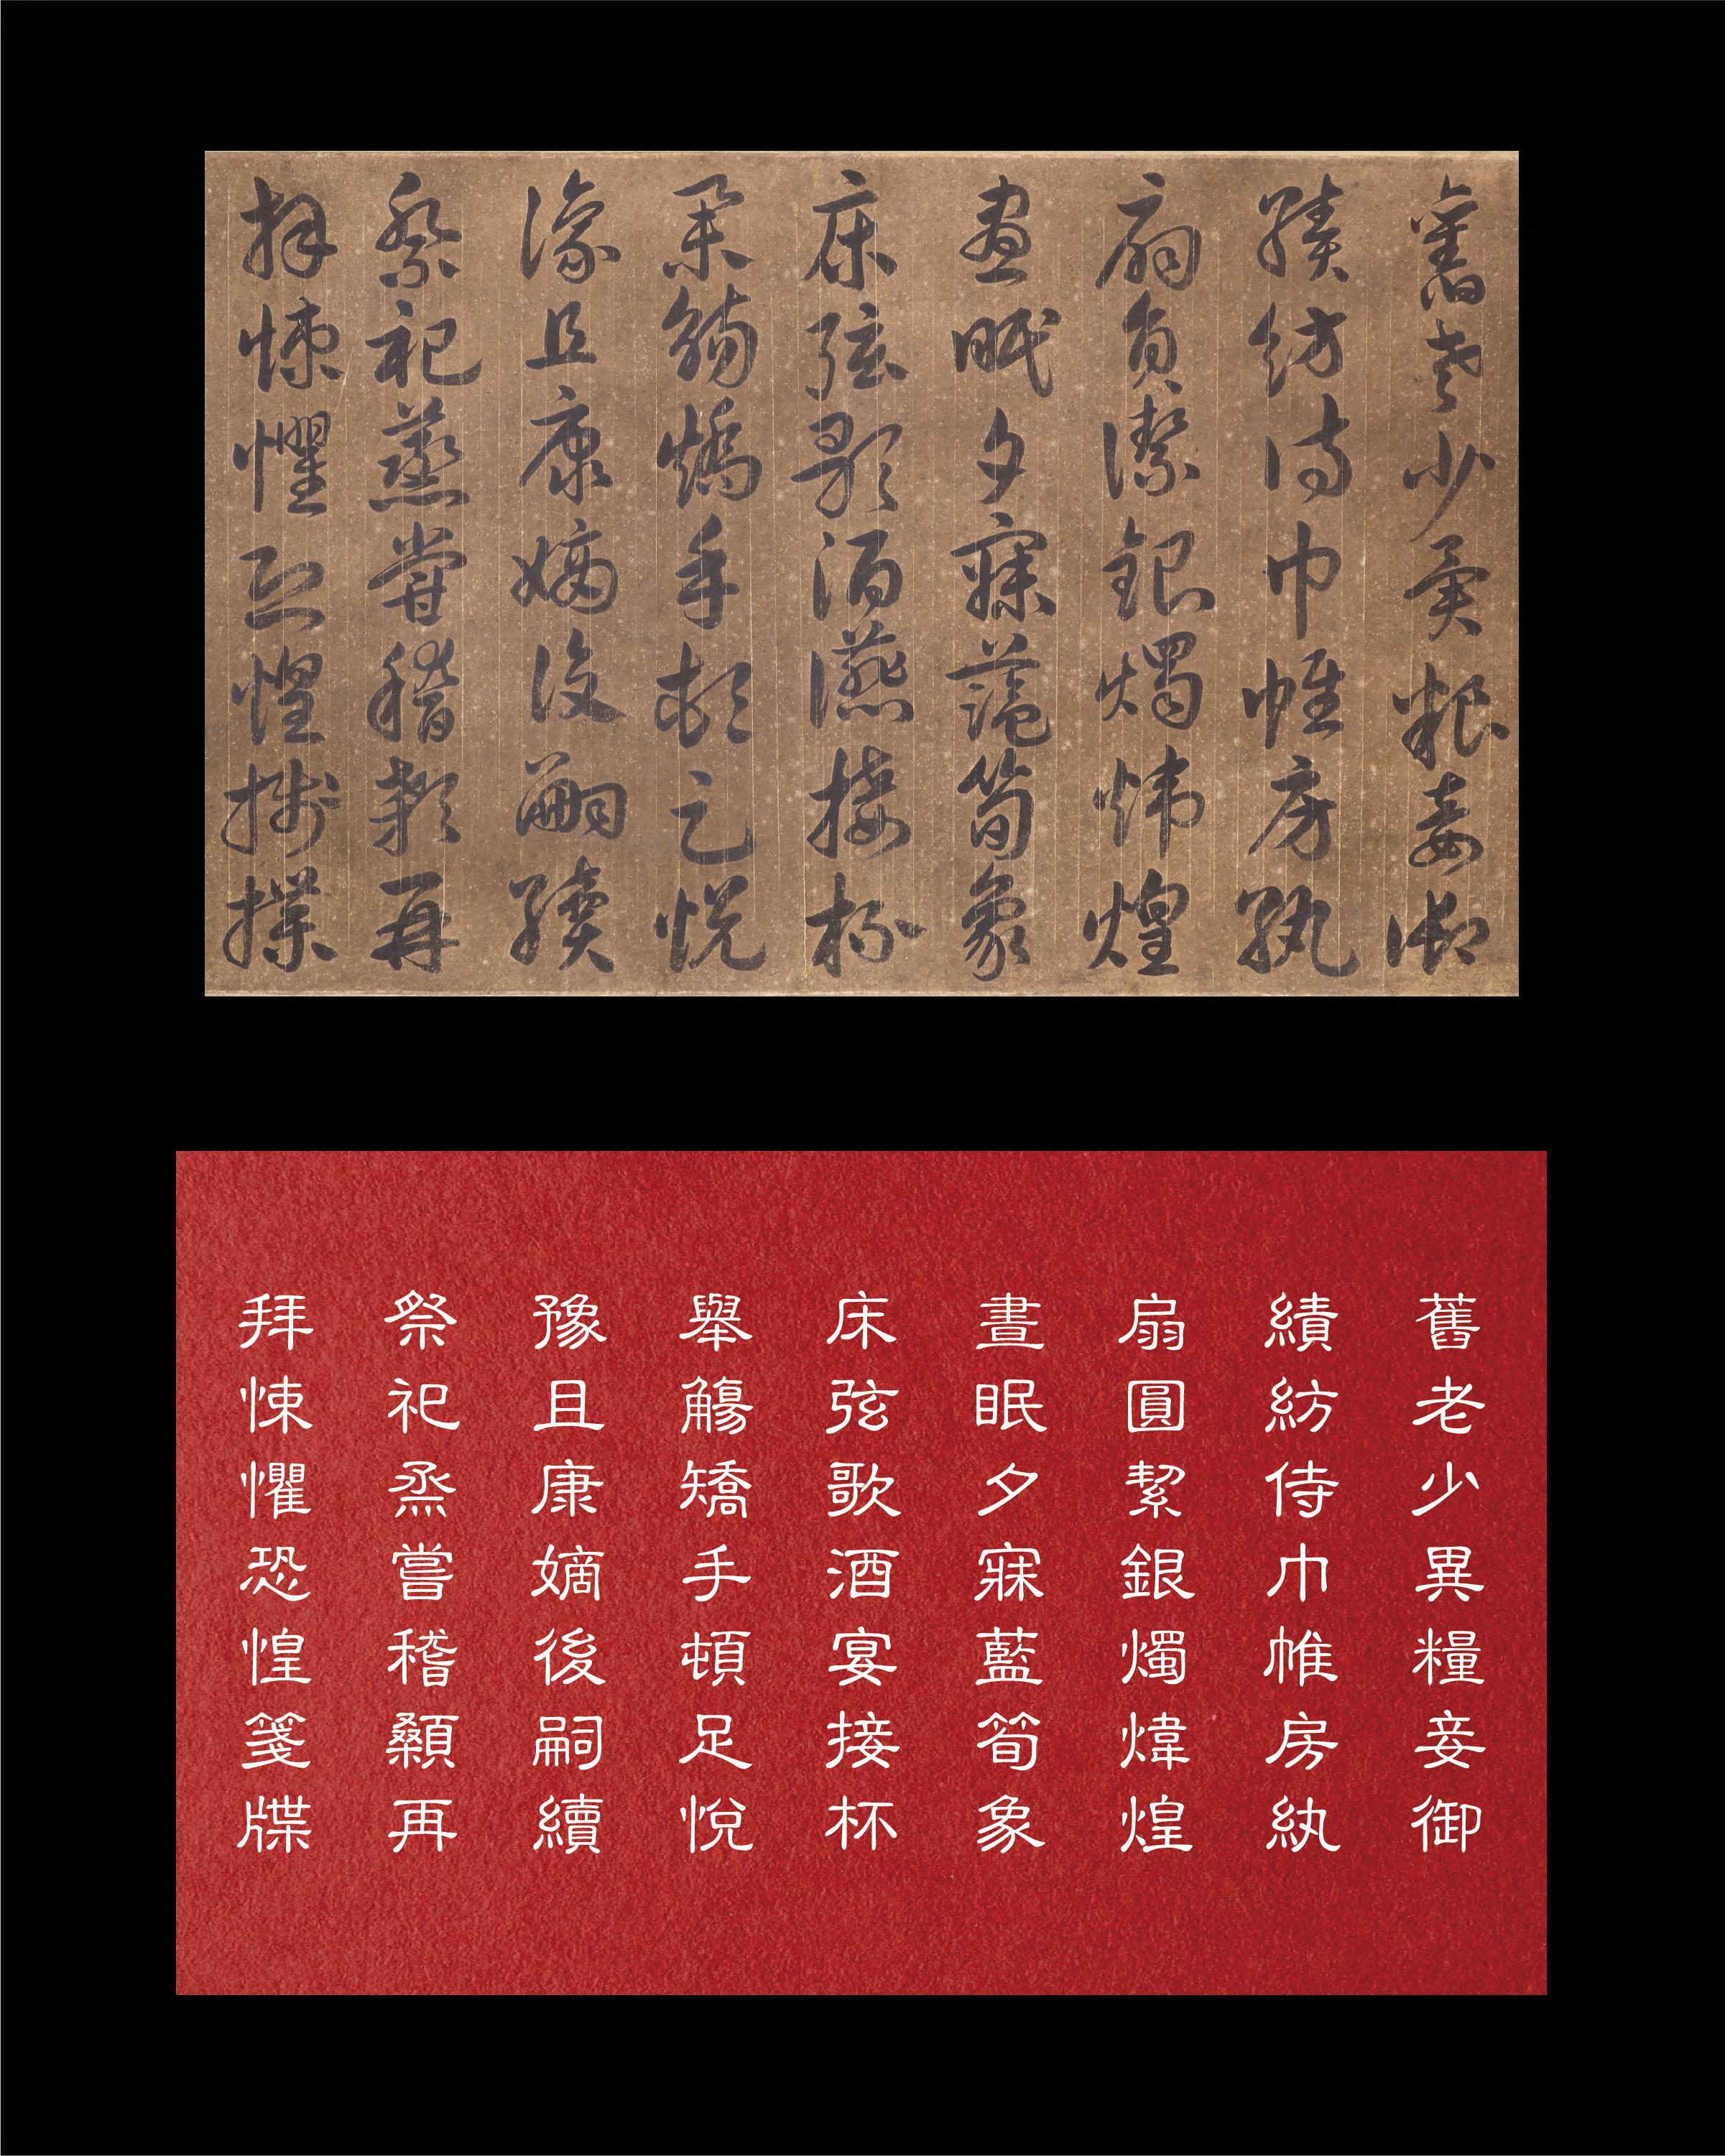 舊老少異粮妾御
績紡侍巾帷房紈
扇員潔銀燭煒煌
晝眠夕寐藍筍象
床弦歌酒讌接杯
舉觴矯手頓足悅
豫且康嫡後嗣續
祭祀蒸嘗稽顙再
拜悚懼恐惶牋牒
舊老少異糧妾御
績紡侍巾帷房紈
扇圓絜銀燭煒煌
晝眠夕寐藍筍象
床弦歌酒宴接杯
舉觴矯手頓足悅
豫且康嫡後嗣續
祭祀烝嘗稽顙再
拜悚懼恐惶箋牒